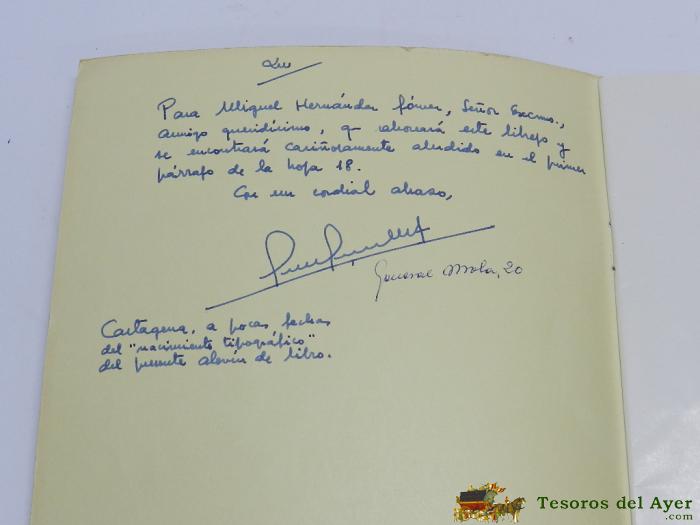 Para Miguel Hernández Gómez, Señor Excmo.,
amigo queridísimo, q saboreará este librejo y
se encontrará cariñosamente aludido en el primer
párrafo de la hoja 18.
Con un cordial abrazo,
General Mola, 20
Cartagena, a pocas fechas
del "nacimiento tipográfico"
del presente alevín de libro.
Tesoros del Ayer
.com